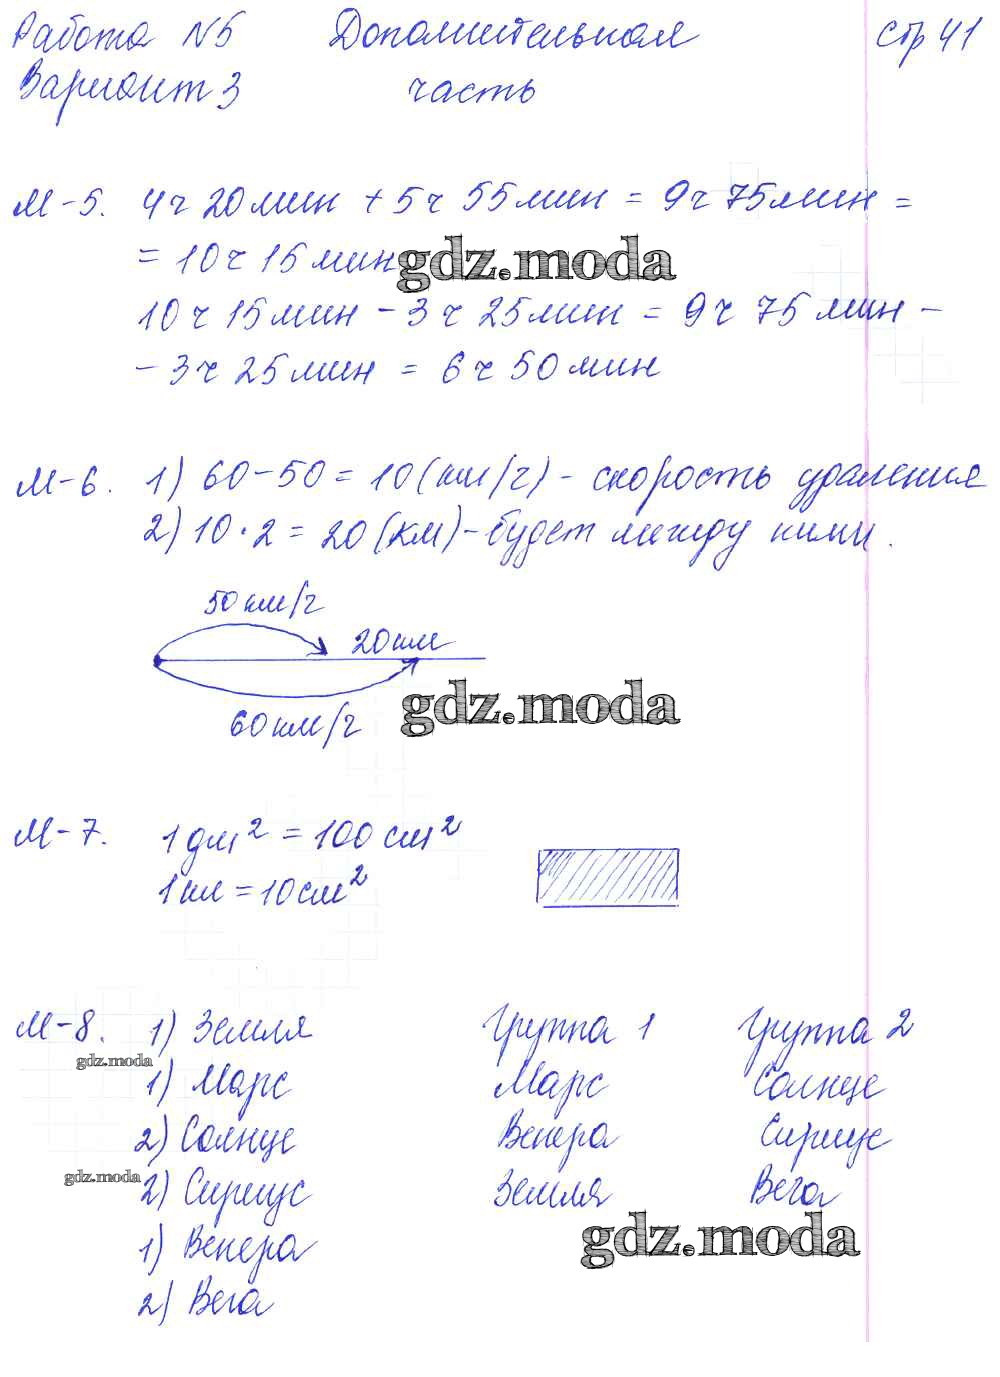 Работа №5 Дополнительная стр 41
Вариант 3 часть
М-5. 4ч 20мин + 5ч 55мин = 9ч 75мин =
= 10ч 15мин
gdz.moda
10ч 15мин - 3ч 25мин = 9ч 75мин -
- 3ч 25мин = 6ч 50мин
М-6. 1) 60-50=10(км/ч)- скорость удаления
2) 10·2=20(км)-будет между ними.
50км/ч
20км
gdz.moda
60км/ч
М-7. 1дм²=100см²
1кл=10см²
М-8. 1) Земля Группа 1 Группа 2
gdz.moda
1) Марс Марс Солнце
2) Солнце Венера Сириус
gdz.moda
2) Сириус Земля Вега
gdz.moda
1) Венера
2) Вега